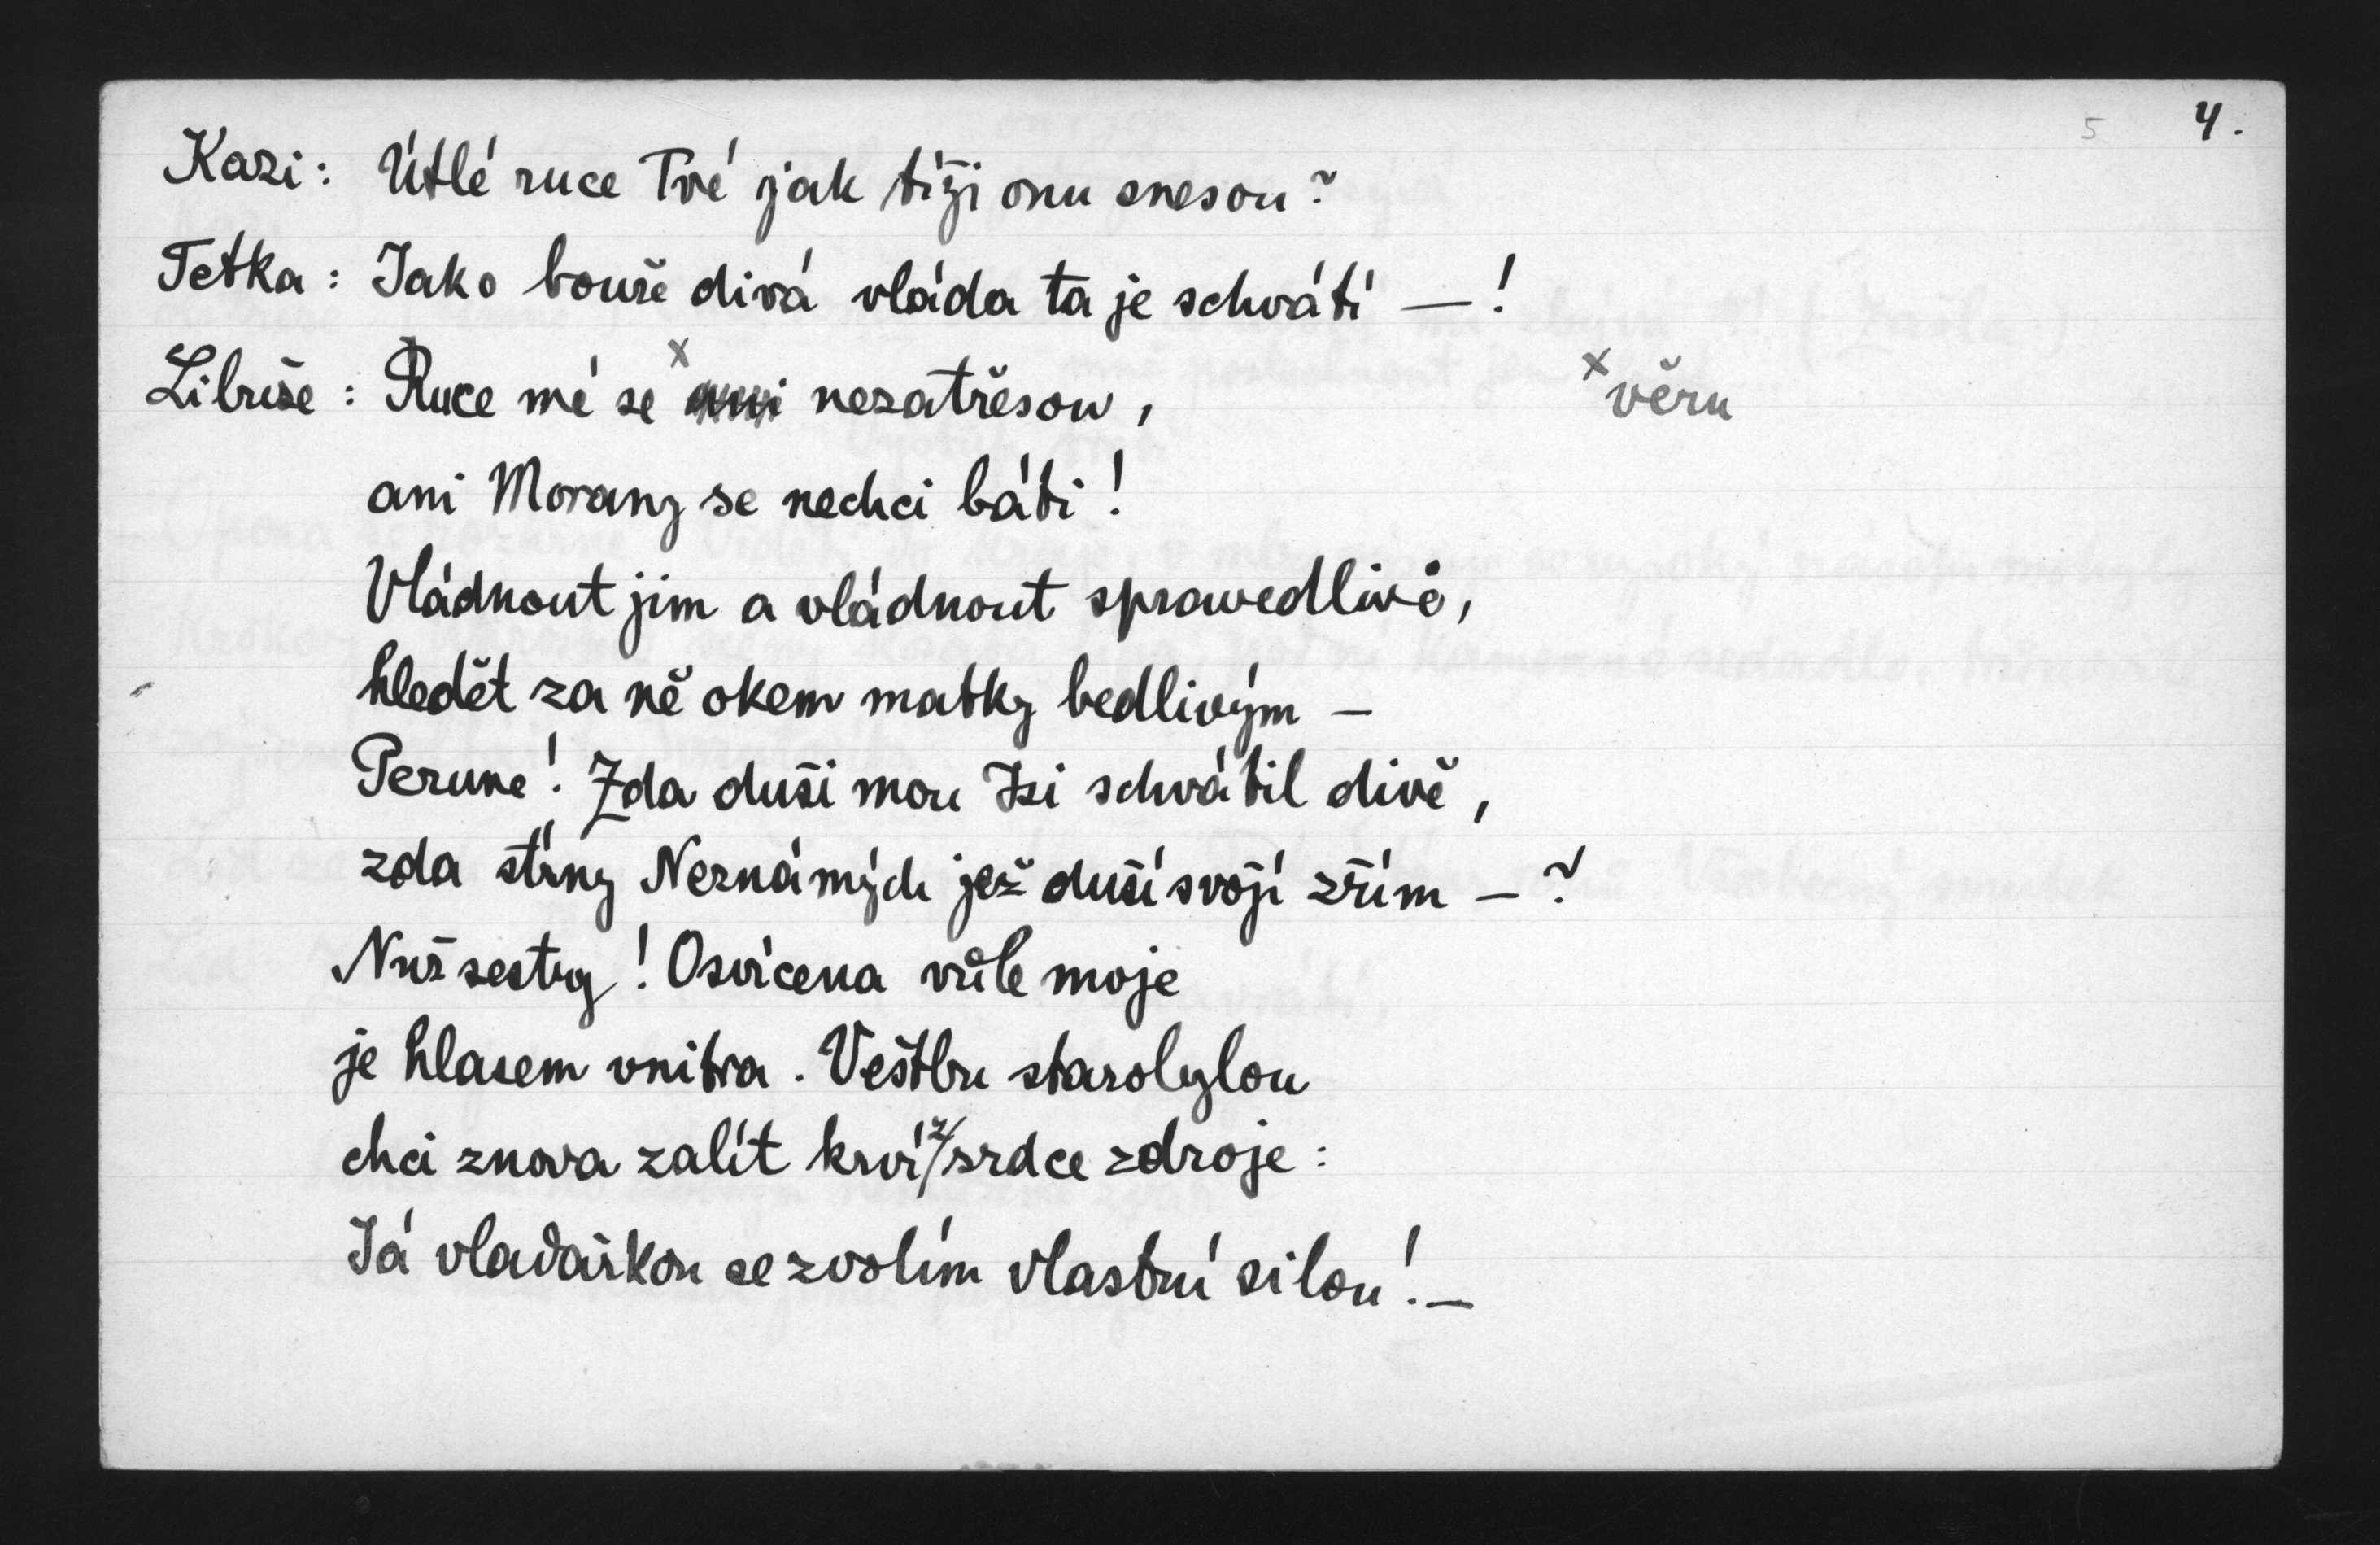 5 4.
Kazi: Útlé ruce Tvé jak tíži onu snesou?
Tetka: Jako bouře divá vláda ta je schvátí —!
Libuše: Ruce mé se x ani nezatřesou, x věru
ani Morany se nechci báti!
Vládnout jim a vládnout spravedlivě,
hledět za ně okem matky bedlivým –
Perune! Zda duši mou Jsi schvátil divě,
zda stíny Neznámých jež duší svojí zřím – ?
Nuž sestry! Osvícena vůle moje
je hlasem vnitra. Veštbu starobylou
chci znova zalít krví z/ srdce zdroje:
Já vladařkou se zvolím vlastní silou! –